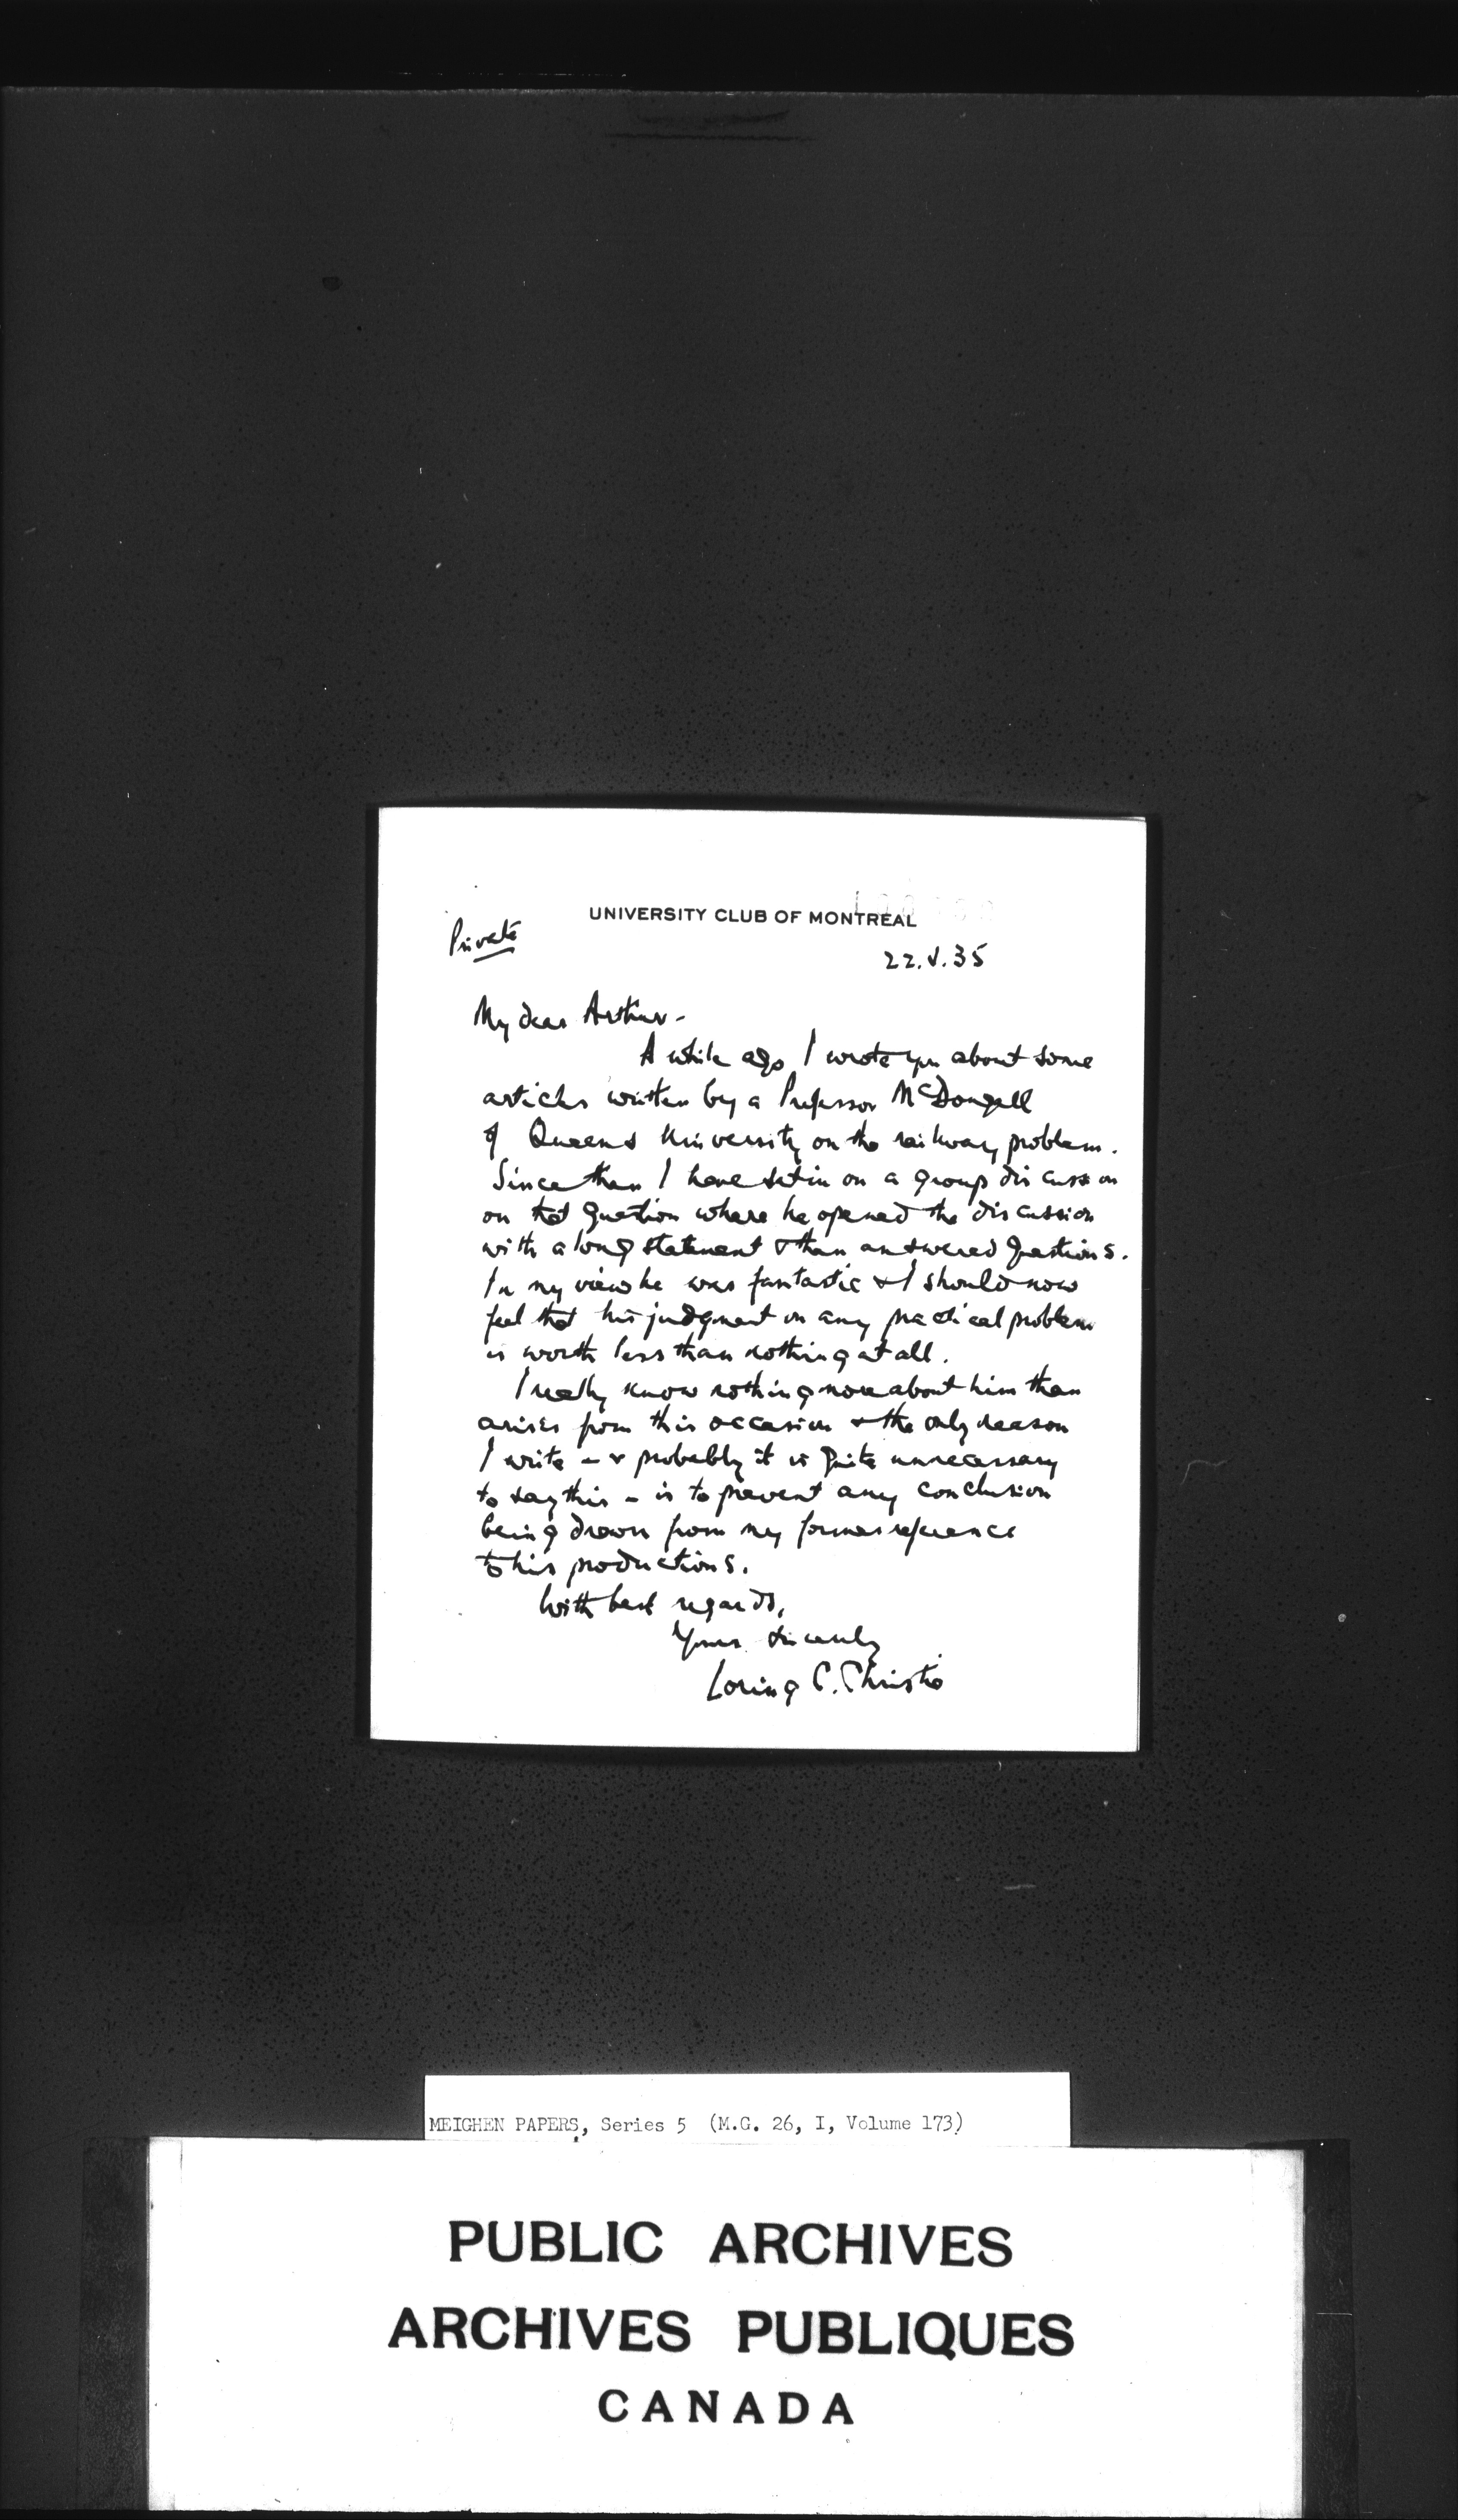 UNIVERSITY CLUB OF MONTREAL
Private
22.V.35
My dear Arthur -
A while ago I wrote you about some
articles written by a Professor McDougall
of Queens University on the railway problem.
Since then I have sat in on a group discussion
on that question where he opened the discussion
with a long statement & then answered questions.
In my view he was fantastic & I should now
feel that his judgment on any practical problem
is worth less than nothing at all.
I really know nothing more about him than
arises from this occasion & the only reason
I write - & probably it is quite unnecessary
to say this - is to prevent any conclusion
being drawn from my former reference
to his productions.
With best regards,
Yours sincerely
Loring C. Christie
MEIGHEN PAPERS, Series 5 (M.G. 26, I, Volume 173)
PUBLIC ARCHIVES
ARCHIVES PUBLIQUES
CANADA